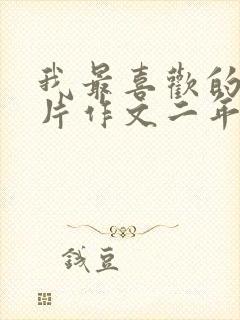 我最喜歡的
片作文二年
錢豆